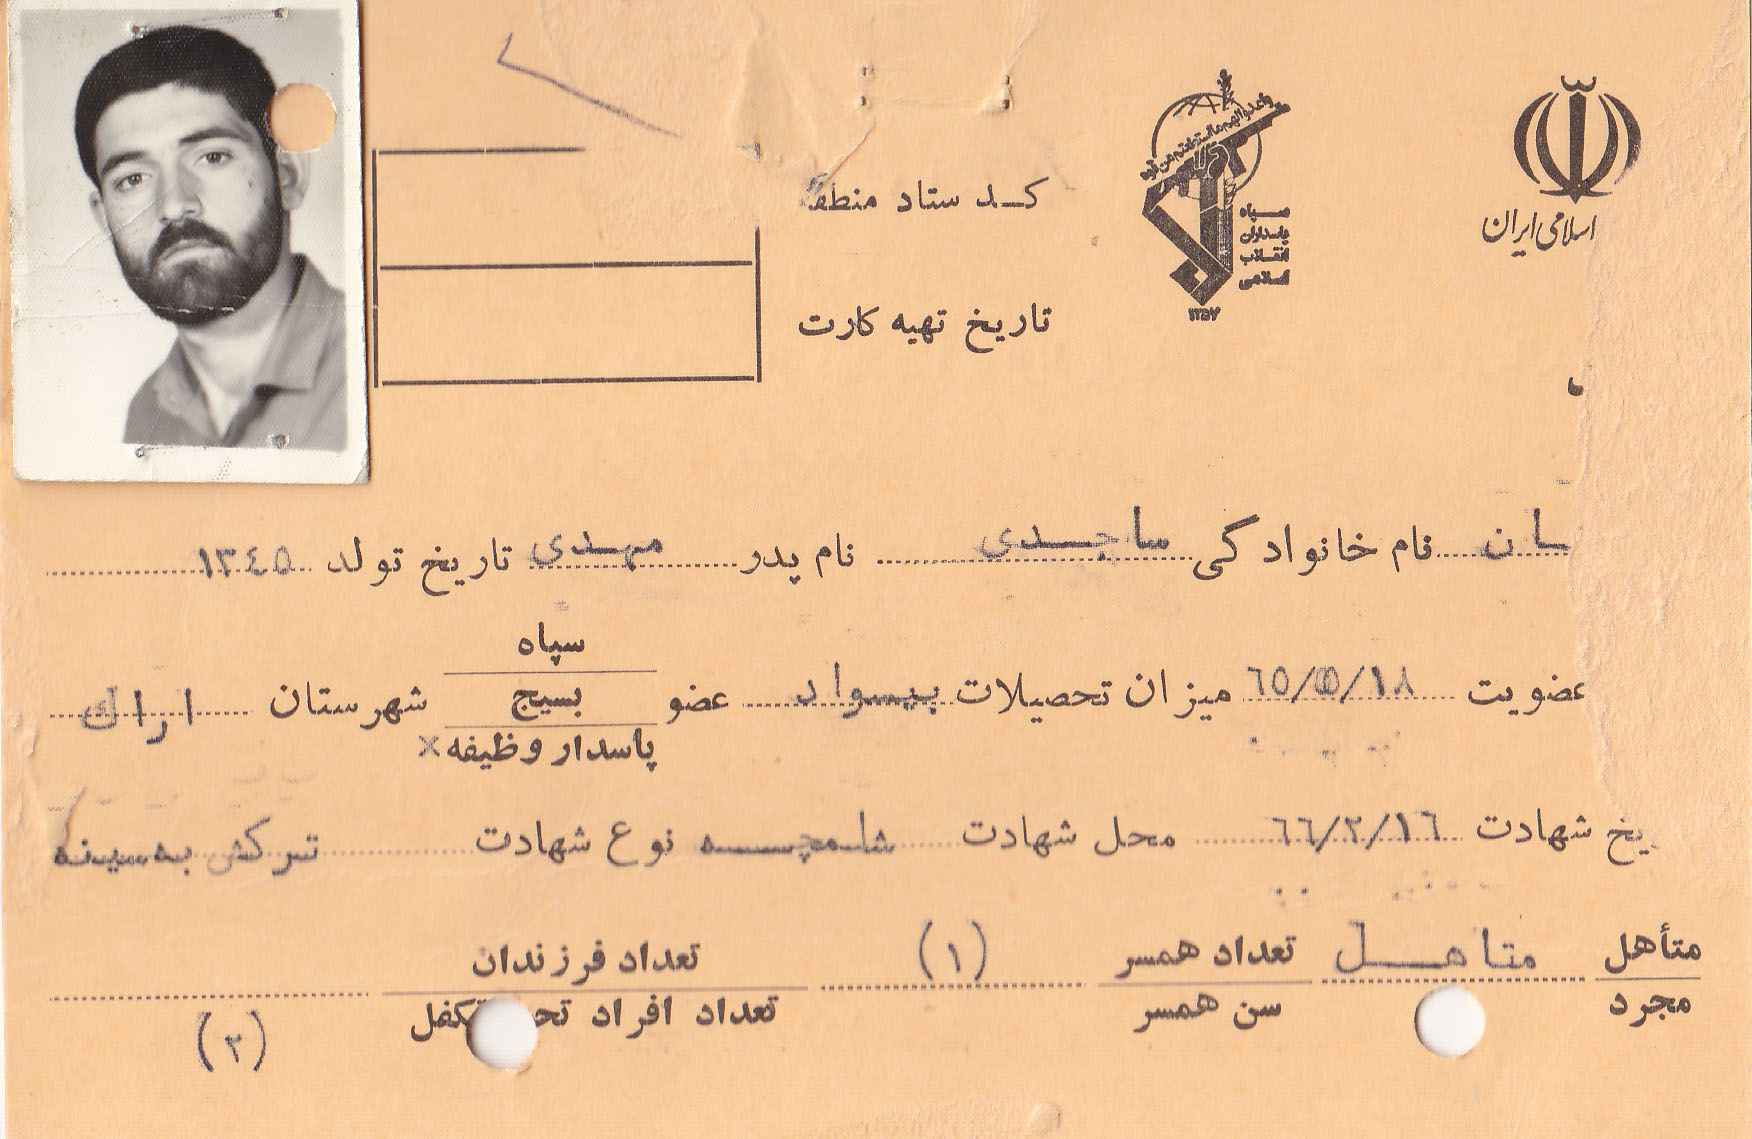 اسلامی ایران
سپاه
پاسداران
انقلاب
اسلامی
۱۳۵۷
کد ستاد
تاریخ تهیه کارت
نام خانوادگی ساجدی نام پدر مهدی تاریخ تولد ۱۳٤۵
سپاه
عضویت ٦۵/۵/۱۸ میزان تحصیلات بیسواد عضو بسیج شهرستان اراک
پاسدار وظیفه ×
شهادت ٦٦/۲/۱٦ محل شهادت شلمچه نوع شهادت ترکش به سینه
متأهل متاهل تعداد همسر (۱) تعداد فرزندان
مجرد سن همسر تعداد افراد تکفل (۲)